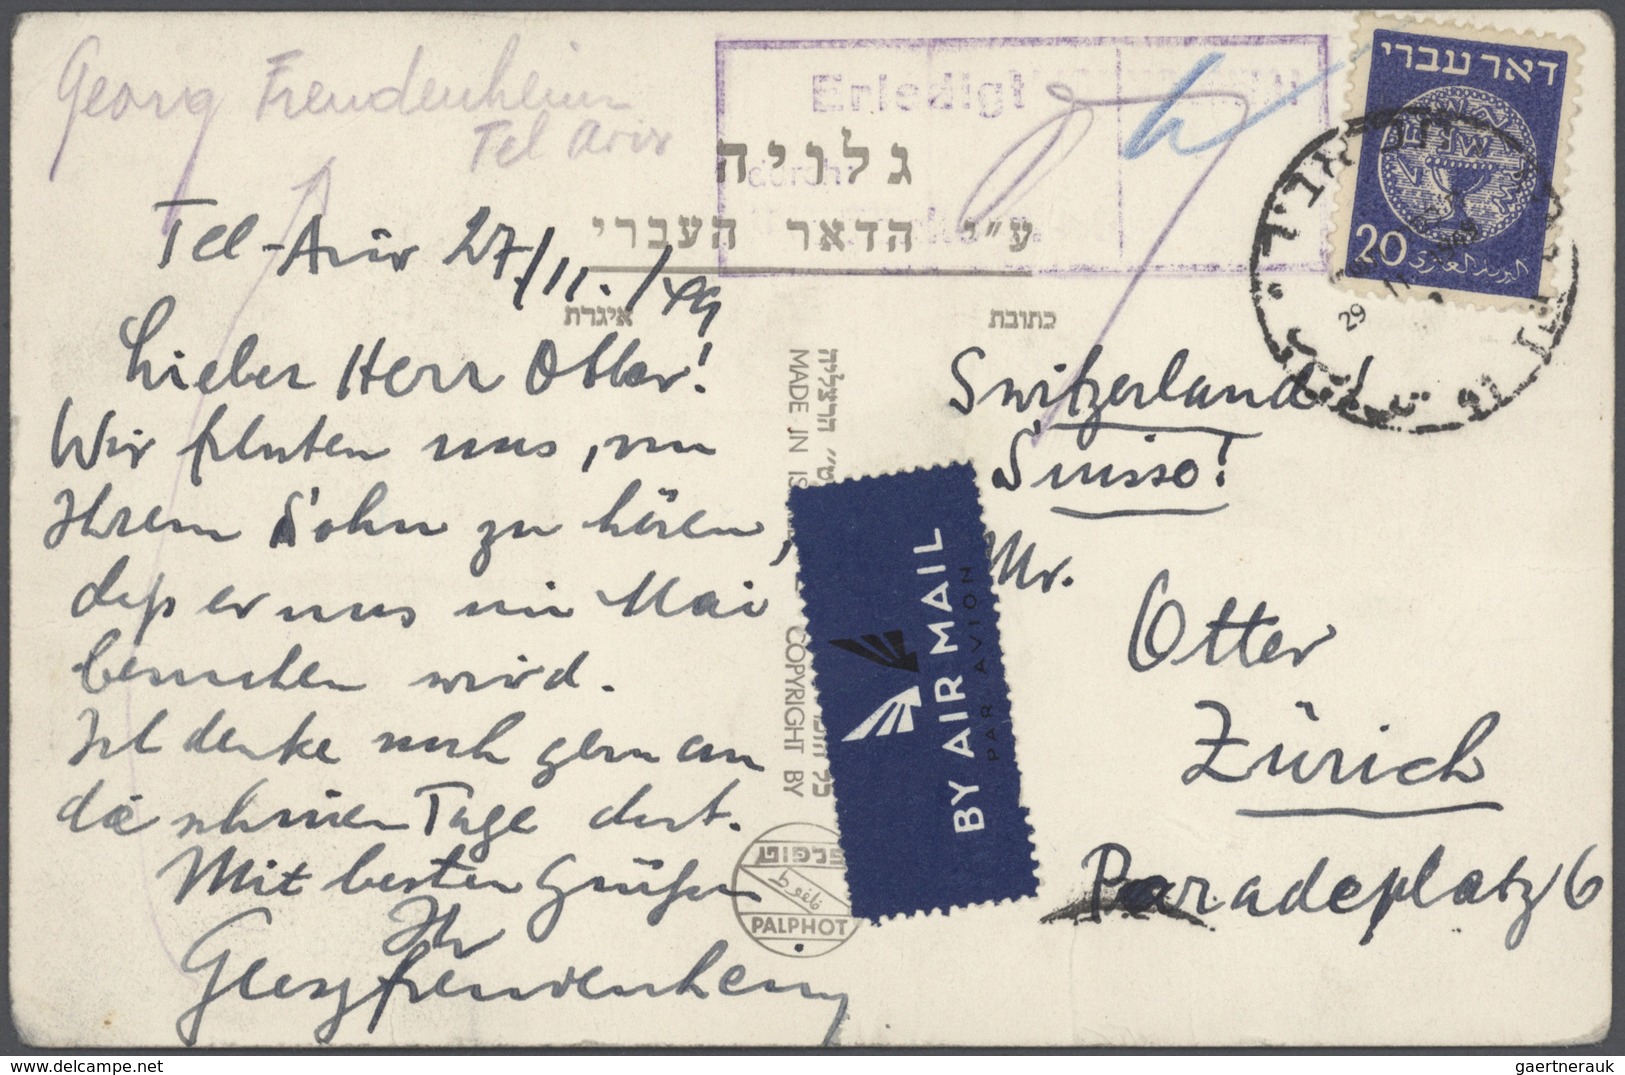 Georg Freudenheim
Tel Aviv
Erledigt
durch:
גלויה
ע״י הדאר העברי
איגרת
כתובת
דאר עברי
20
البريد العبري
29
Tel-Aviv 27./11./49
Lieber Herr Otter!
Wir freuten uns, von
Ihrem Sohn zu hören,
daß er uns im Mai
besuchen wird.
Ich denke noch gern an
die schönen Tage dort.
Mit besten Grüßen
Ihr
Georg Freudenheim
הרצליה
MADE IN IS
COPYRIGHT BY
כל
פלפוט
PALPHOT
BY AIR MAIL
PAR AVION
Switzerland!
Suisse!
Mr.
Otter
Zürich
Paradeplatz 6
www.delcampe.net
gaertnerauk